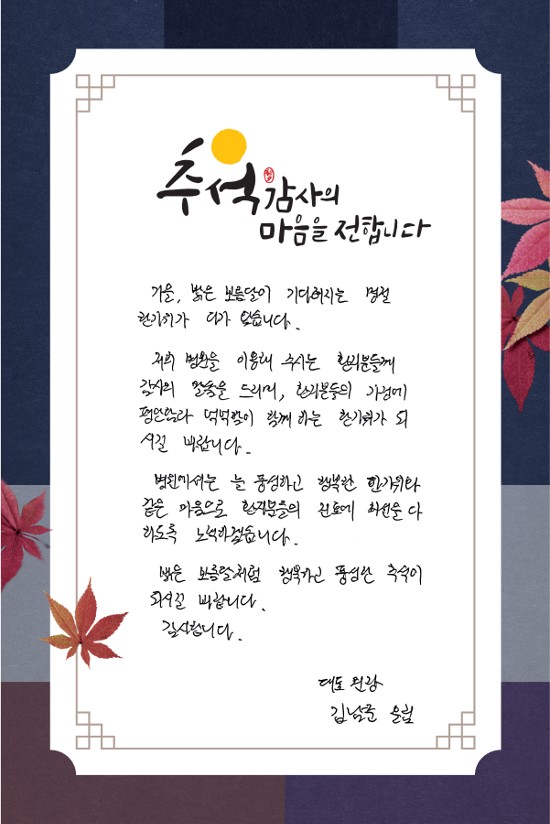 추석 감사의
마음을 전합니다
가을, 밝은 보름달이 기다려지는 명절
한가위가 다가 왔습니다.
저희 병원을 이용해 주시는 환자분들께
감사의 말씀을 드리며, 환자분들의 가정에
평안함과 넉넉함이 함께 하는 한가위가 되
시길 바랍니다.
병원에서는 늘 풍성하고 행복한 한가위와
같은 마음으로 환자분들의 진료에 최선을 다
하도록 노력하겠습니다.
밝은 보름달처럼 행복하고 풍성한 추석이
되시길 바랍니다.
감사합니다.
대표 원장
김남준 올림